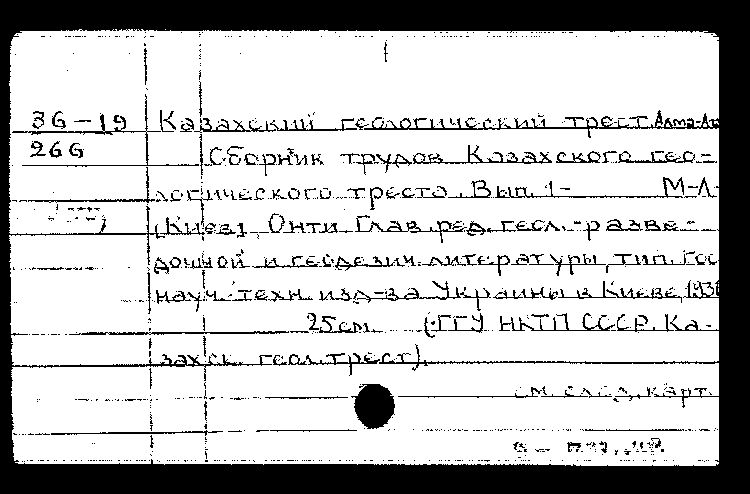 36-19 Казахский геологический трест. Алма-А
266 Сборник трудов Казахского гео-
логического треста. Вып. 1- М-Л-
[Киев], Онти Глав. ред. геол.-разве-
дочной и геодезич. литературы, тип. Гос
науч.-техн. изд-ва Украины в Киеве, 193
25 см. (:ГГУ НКТП СССР. Ка-
захск. геол. трест).
см. след. карт.